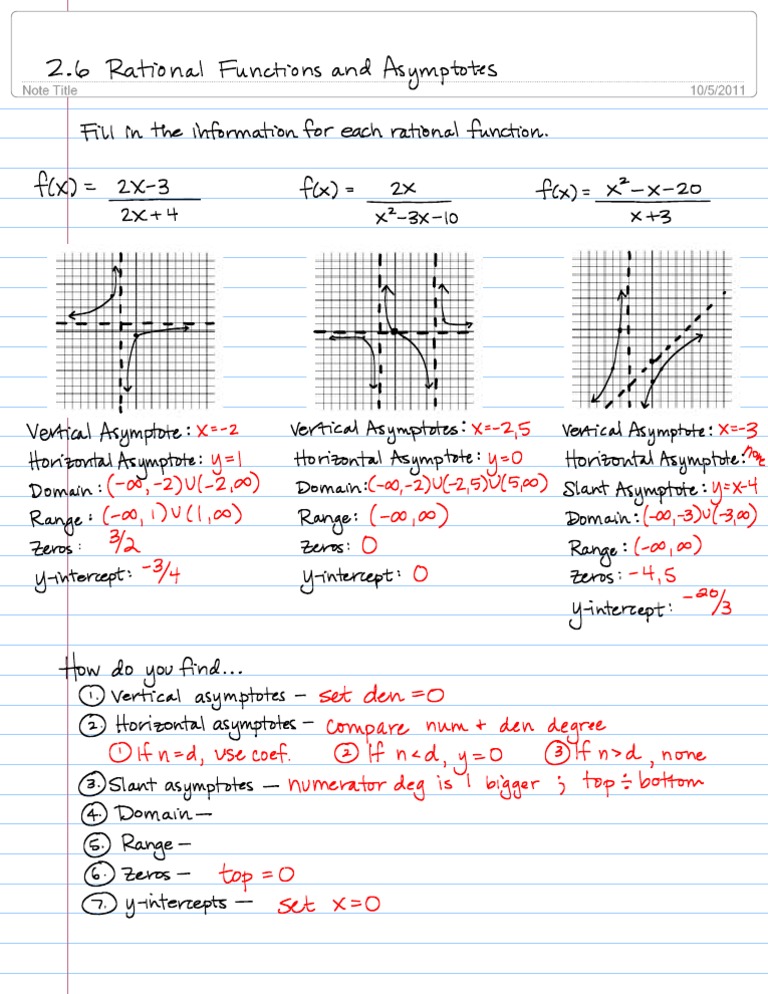 2.6 Rational Functions and Asymptotes
Note Title 10/5/2011
Fill in the information for each rational function.
f(x) = (2x-3)/(2x+4) f(x) = 2x/(x²-3x-10) f(x) = (x²-x-20)/(x+3)
Vertical Asymptote: x=-2
Horizontal Asymptote: y=1
Domain: (-∞,-2)∪(-2,∞)
Range: (-∞,1)∪(1,∞)
Zeros: 3/2
y-intercept: -3/4
Vertical Asymptotes: x=-2,5
Horizontal Asymptote: y=0
Domain: (-∞,-2)∪(-2,5)∪(5,∞)
Range: (-∞,∞)
Zeros: 0
y-intercept: 0
Vertical Asymptote: x=-3
Horizontal Asymptote: none
Slant Asymptote: y=x-4
Domain: (-∞,-3)∪(-3,∞)
Range: (-∞,∞)
Zeros: -4,5
y-intercept: -20/3
How do you find...
1. Vertical asymptotes – set den =0
2. Horizontal asymptotes – compare num + den degree
1 If n=d, use coef. 2 If n<d, y=0 3 If n>d, none
3. Slant asymptotes – numerator deg is 1 bigger ; top ÷ bottom
4. Domain –
5. Range –
6. Zeros – top = 0
7. y-intercepts – set x=0